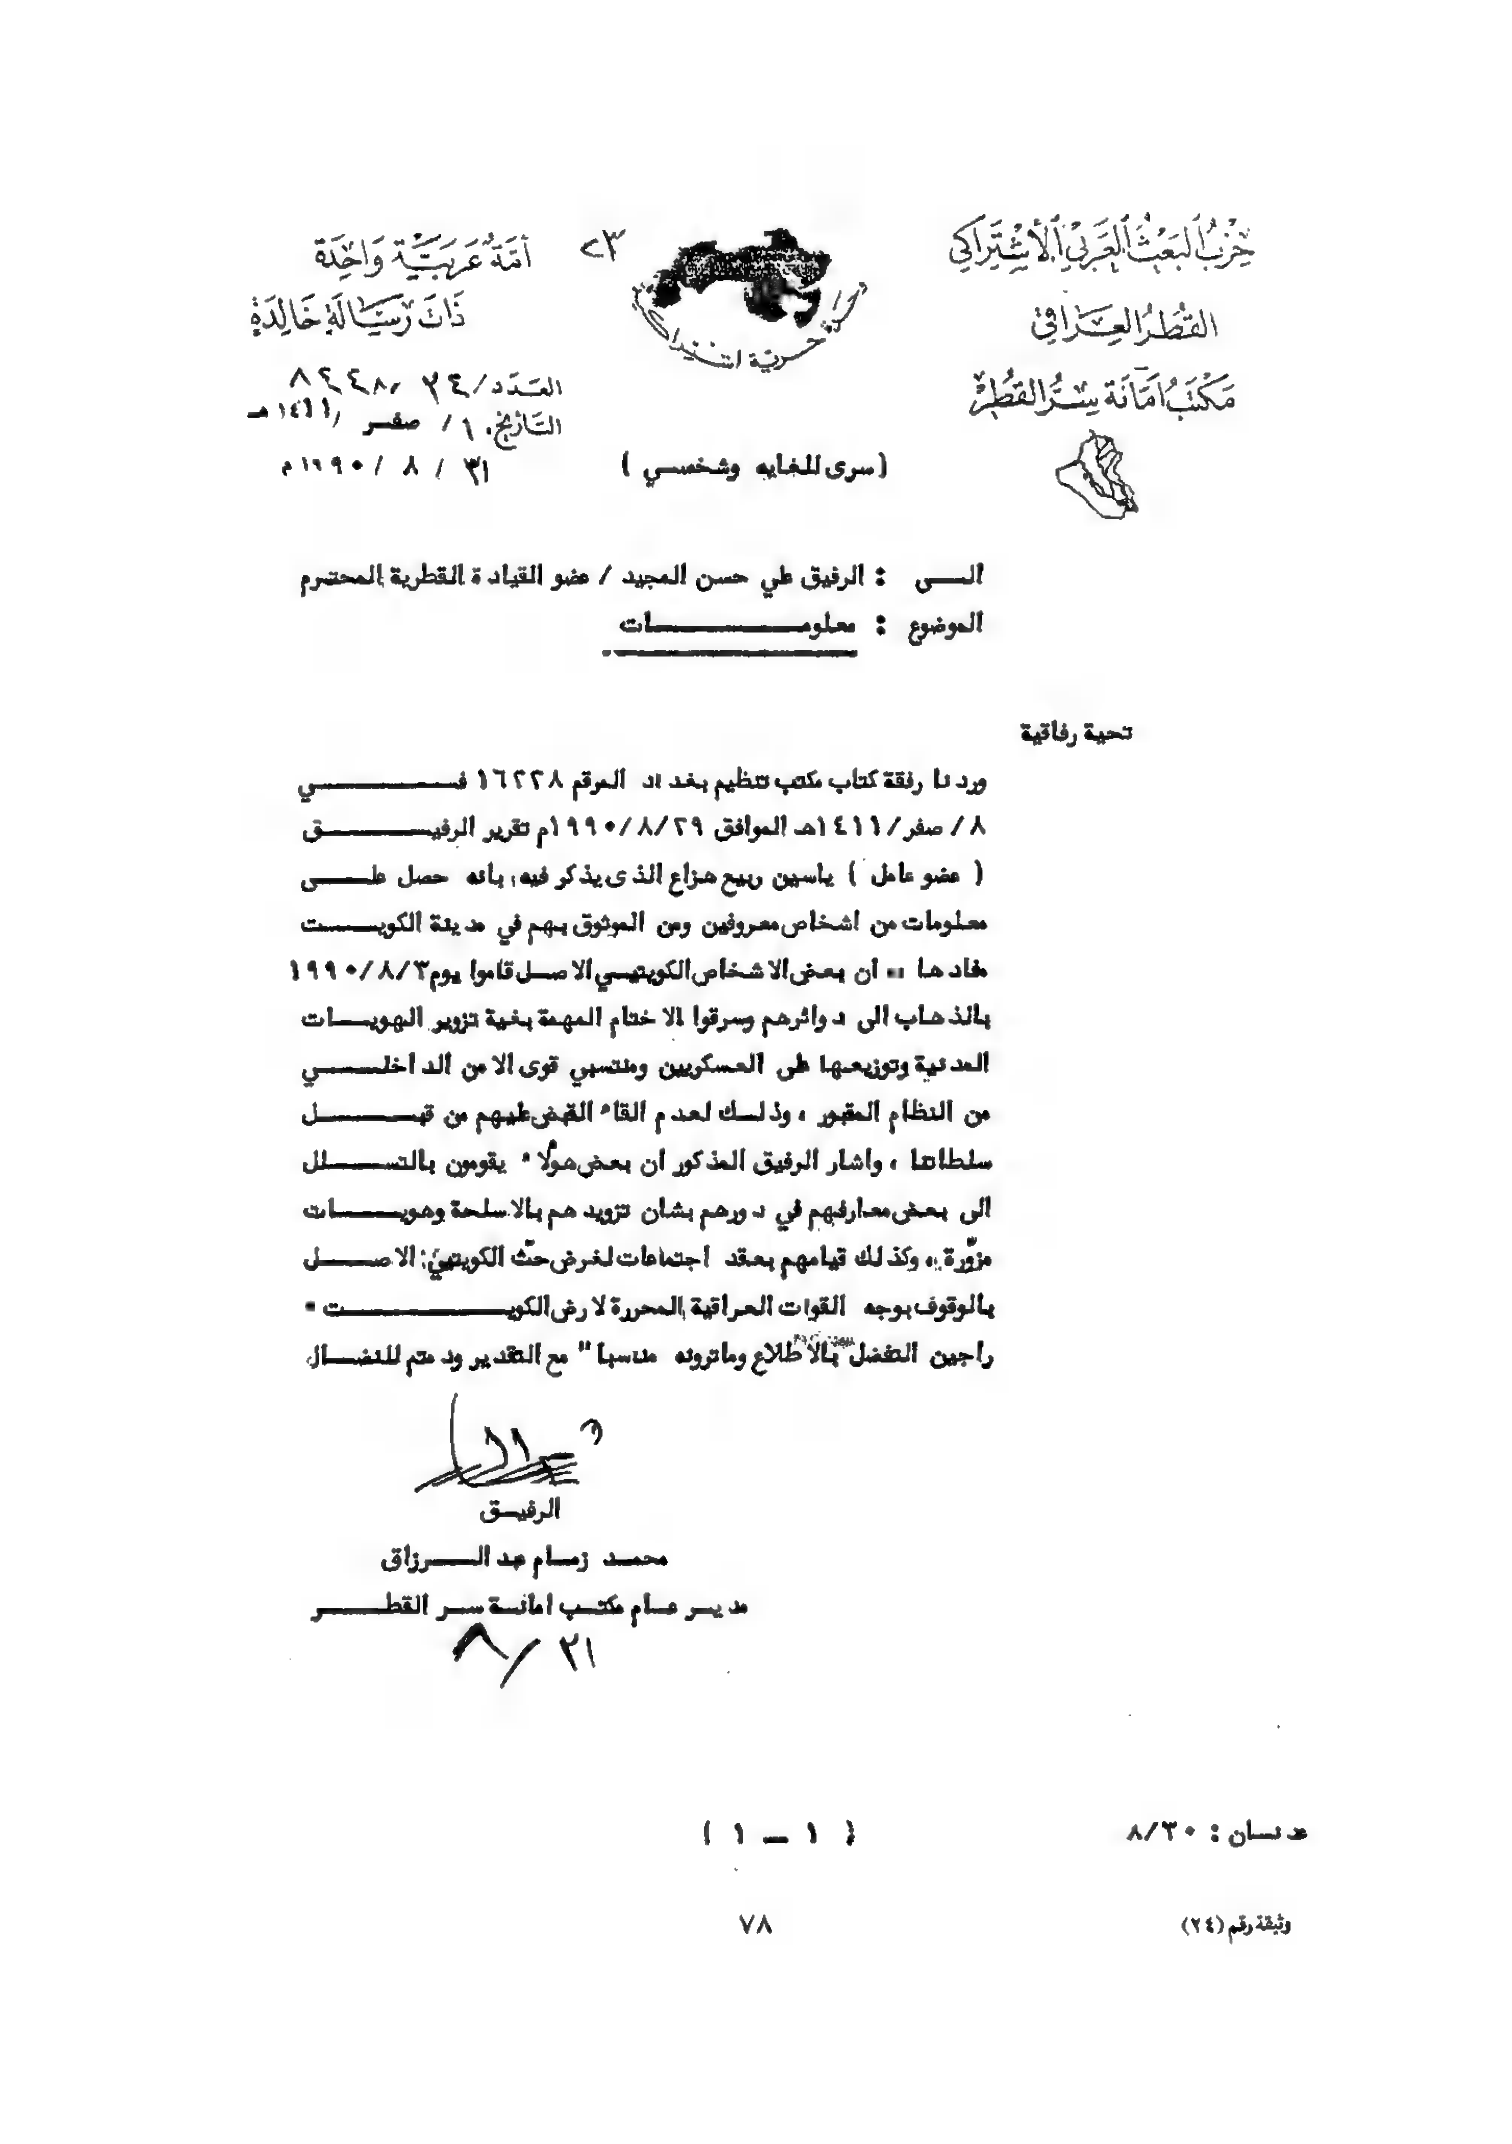 حزب البعث العربي الاشتراكي
القطر العراقي
مكتب امانة سر القطر
وحدة حرية اشتراكية
٢٣
أمة عربية واحدة
ذات رسالة خالدة
العدد/٢٤
التأريخ ١٠/ صفر /١٤١١هـ
٣١ / ٨ / ١٩٩٠م
(سرى للغايه وشخصي)
الـــى : الرفيق علي حسن المجيد / عضو القيادة القطرية المحترم
الموضوع : معلومــــــات
تحية رفاقية
وردنا رفقة كتاب مكتب تنظيم بغداد المرقم ١٦٢٢٨ فــــي
٨/صفر/١٤١١هـ الموافق ١٩٩٠/٨/٢٩م تقرير الرفيـــق
(عضو عامل) ياسين ربيع هزاع الذى يذكر فيه، بانه حصل علـــى
معلومات من اشخاص معروفين ومن الموثوق بهم في مدينة الكويـــت
مفادها " ان بعض الاشخاص الكويتيي الاصل قاموا يوم ١٩٩٠/٨/٣
بالذهاب الى دوائرهم وسرقوا الاختام المهمة بغية تزوير الهويـــات
المدنية وتوزيعها على العسكريين ومنتسبي قوى الامن الداخلـــي
من النظام المقبور ، وذلـك لعدم القاء القبض عليهم من قبـــل
سلطاتنا ، واشار الرفيق المذكور ان بعض هؤلاء يقومون بالتســـلل
الى بعض معارفهم في دورهم بشان تزويدهم بالاسلحة وهويـــات
مزوّرة ، وكذلك قيامهم بعقد اجتماعات لغرض حثّ الكويتيي الاصـــل
بالوقوف بوجه القوات العراقية المحررة لارض الكويـــــت "
راجين التفضل بالاطلاع وماترونه مناسبا" مع التقدير ودمتم للنضـــال
الرفيـق
محمـد زمـام عبد الـــرزاق
مديـر عـام مكتـب امانـة سـر القطـــر
٣١/٨
عدنـان : ٨/٣٠
( ١ ـ ١ )
وثيقة رقم (٢٤)
٧٨